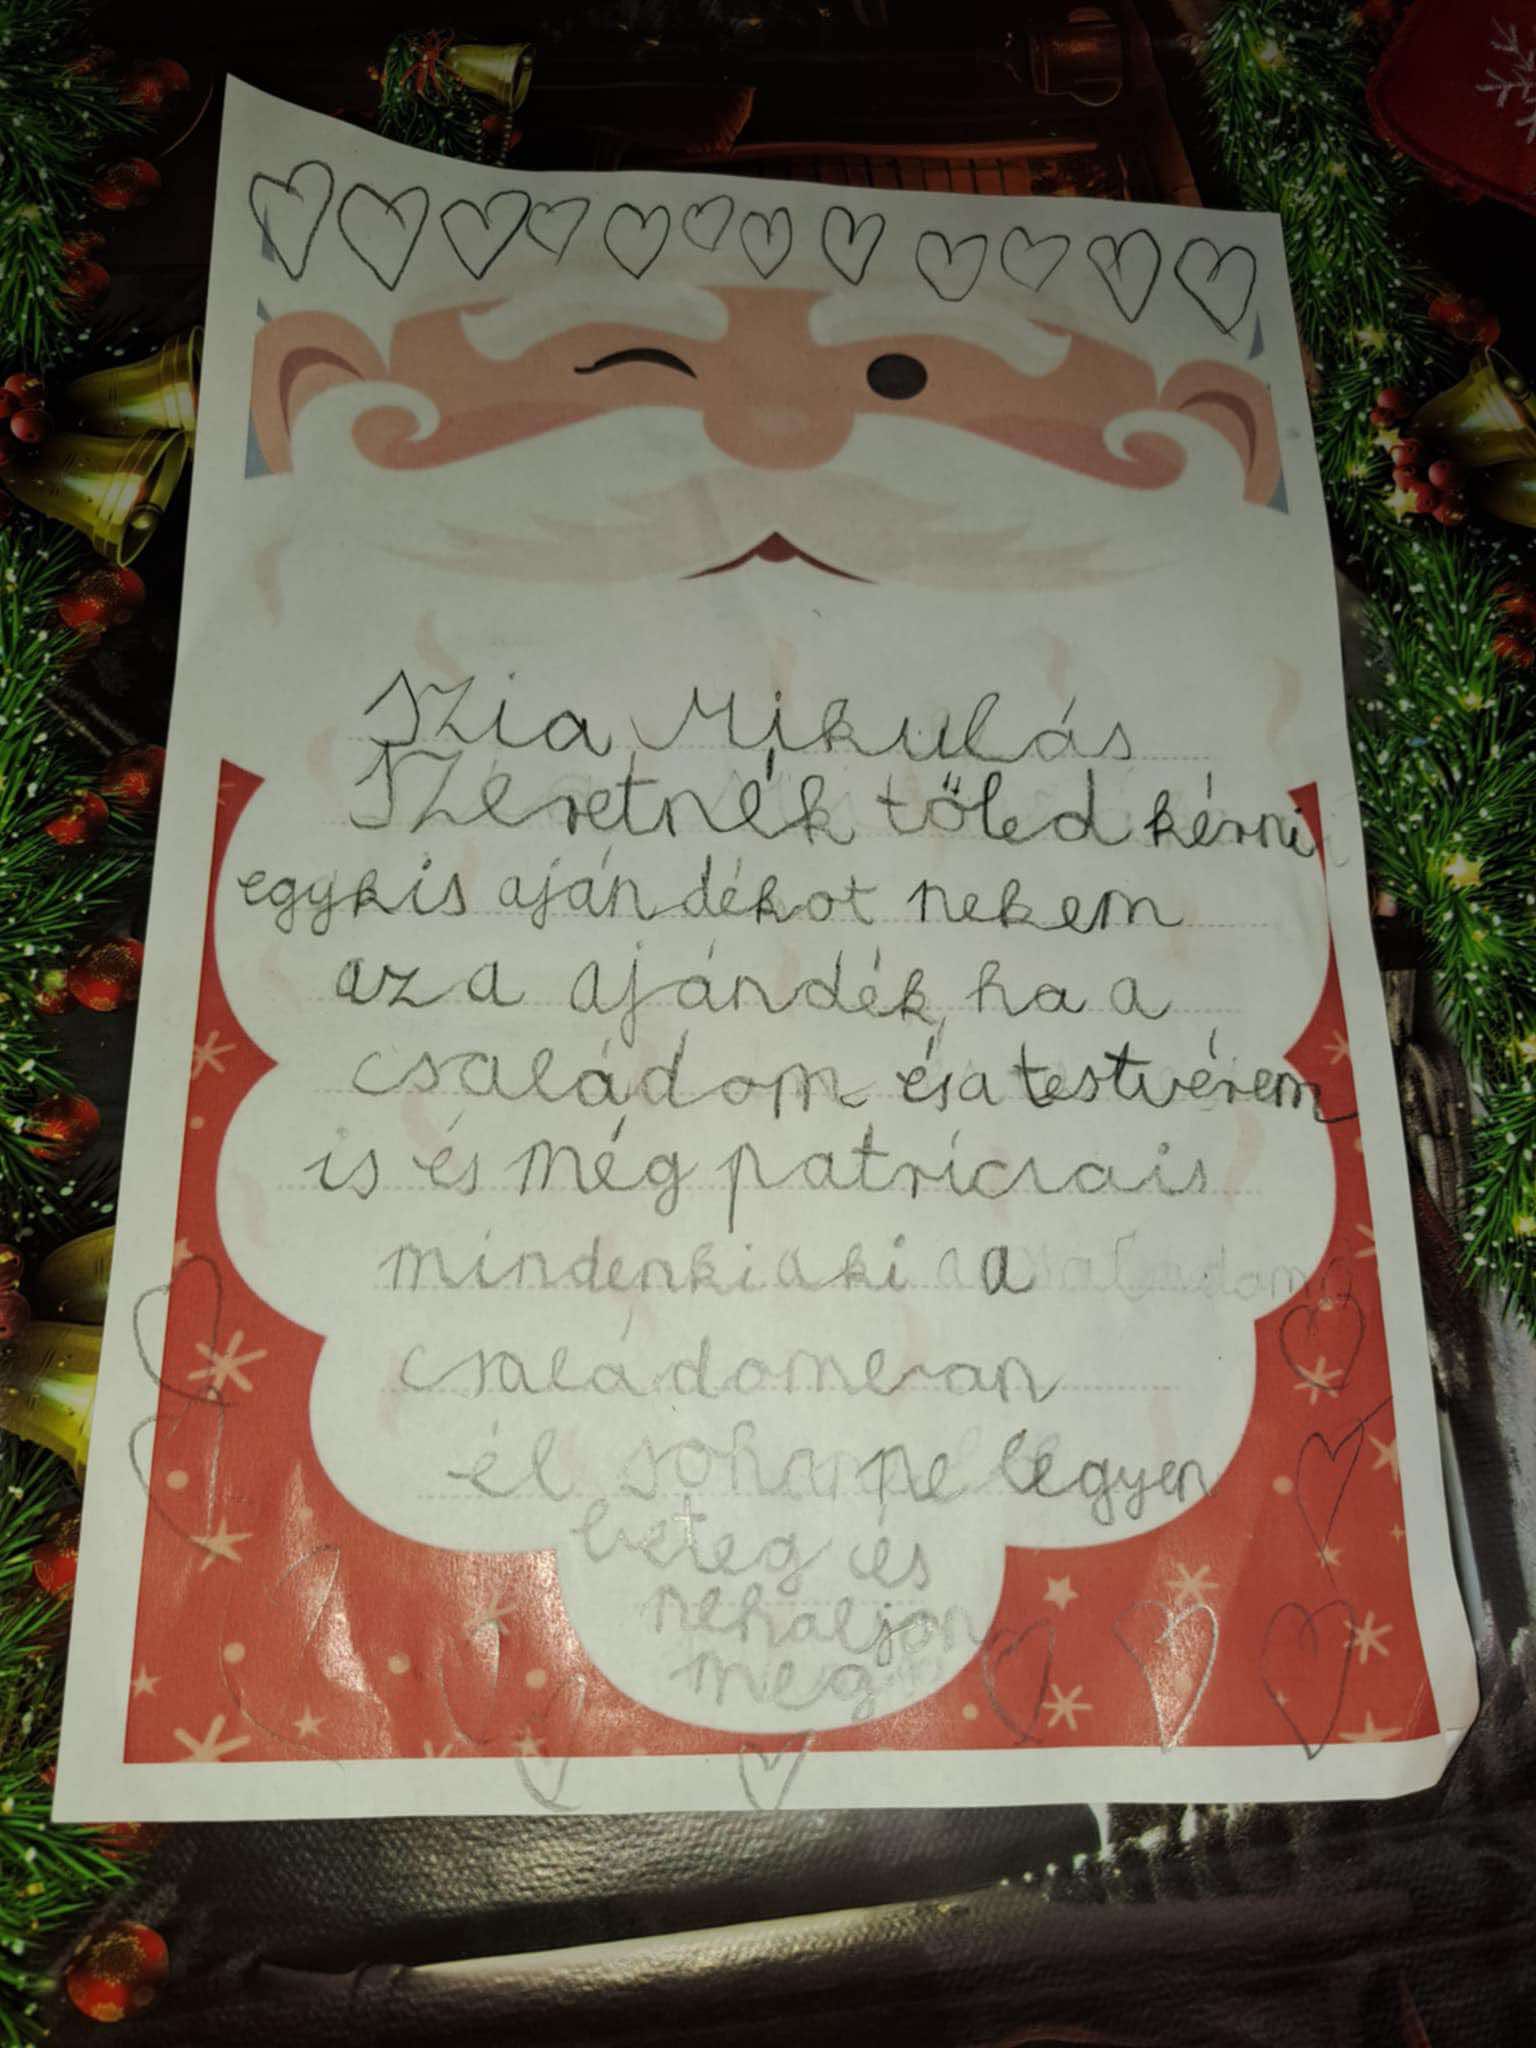 Szia Mikulás
Szeretnék tőled kérni
egykis ajándékot nekem
az a ajándék ha a
családom és a testvérem
is és még patrícsais
mindenki aki a
családomeran
él soha ne legyen
beteg és
nehaljon
meg